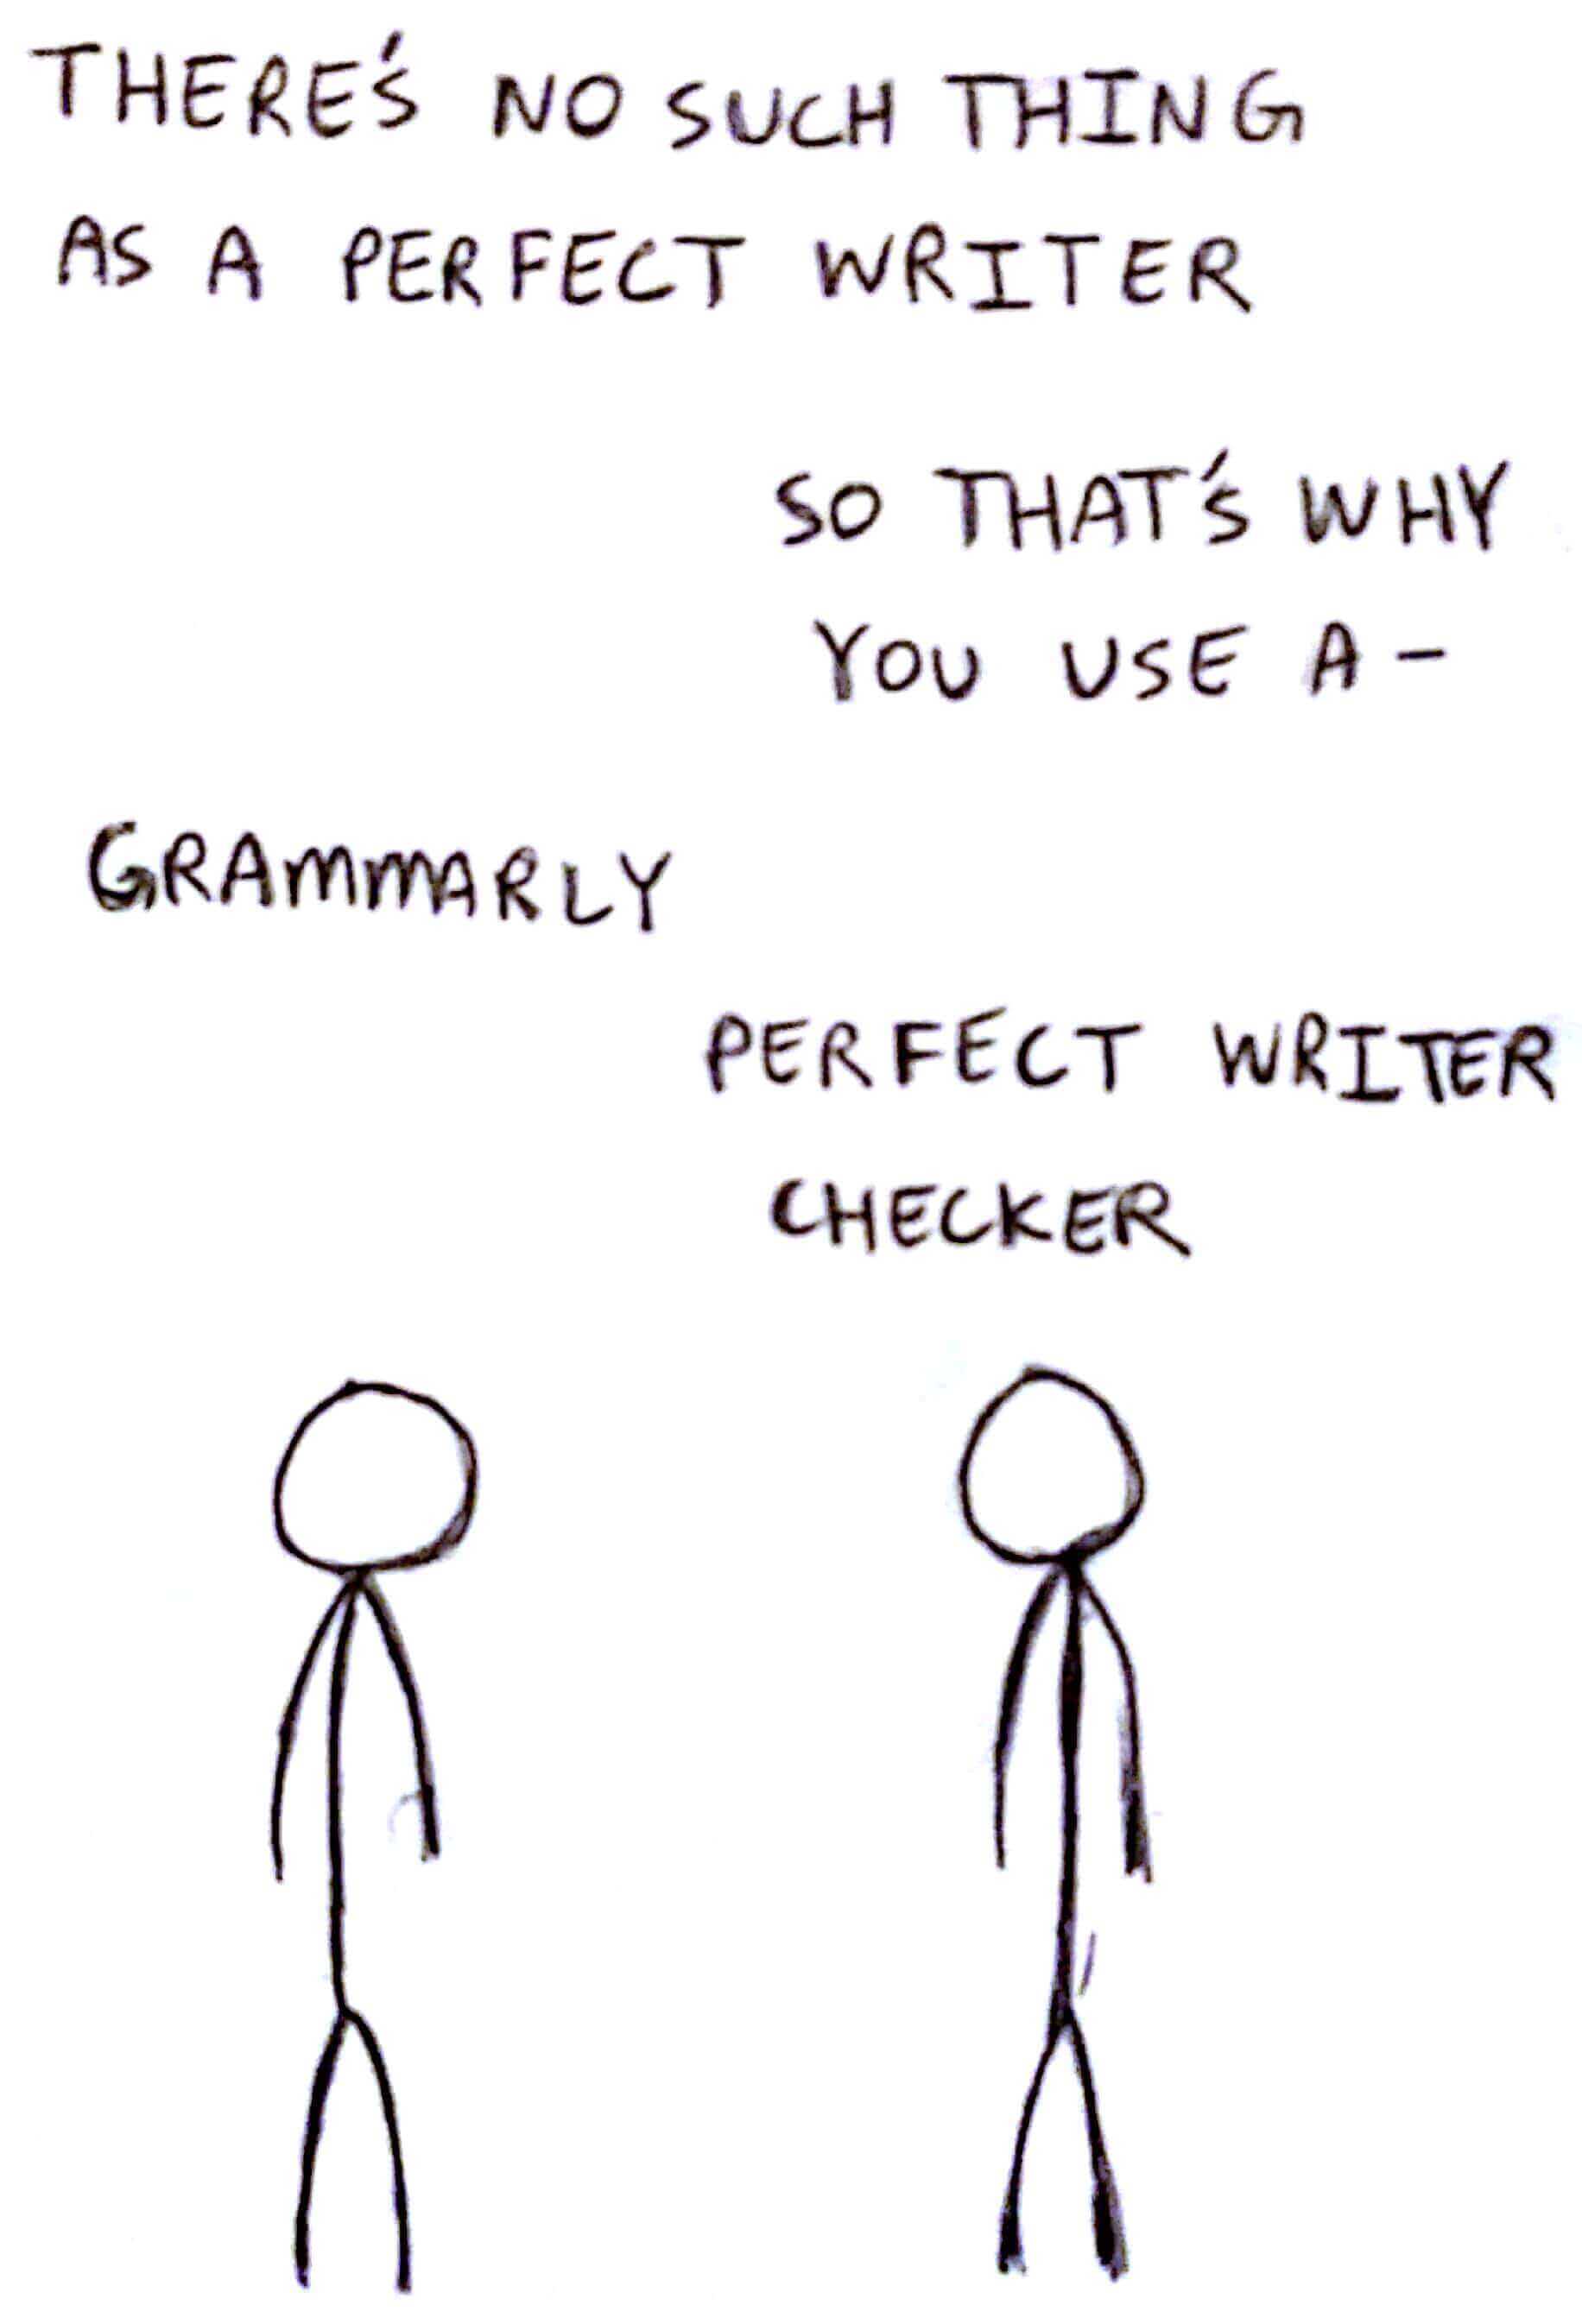 THERE'S NO SUCH THING
AS A PERFECT WRITER
SO THAT'S WHY
YOU USE A-
GRAMMARLY
PERFECT WRITER
CHECKER